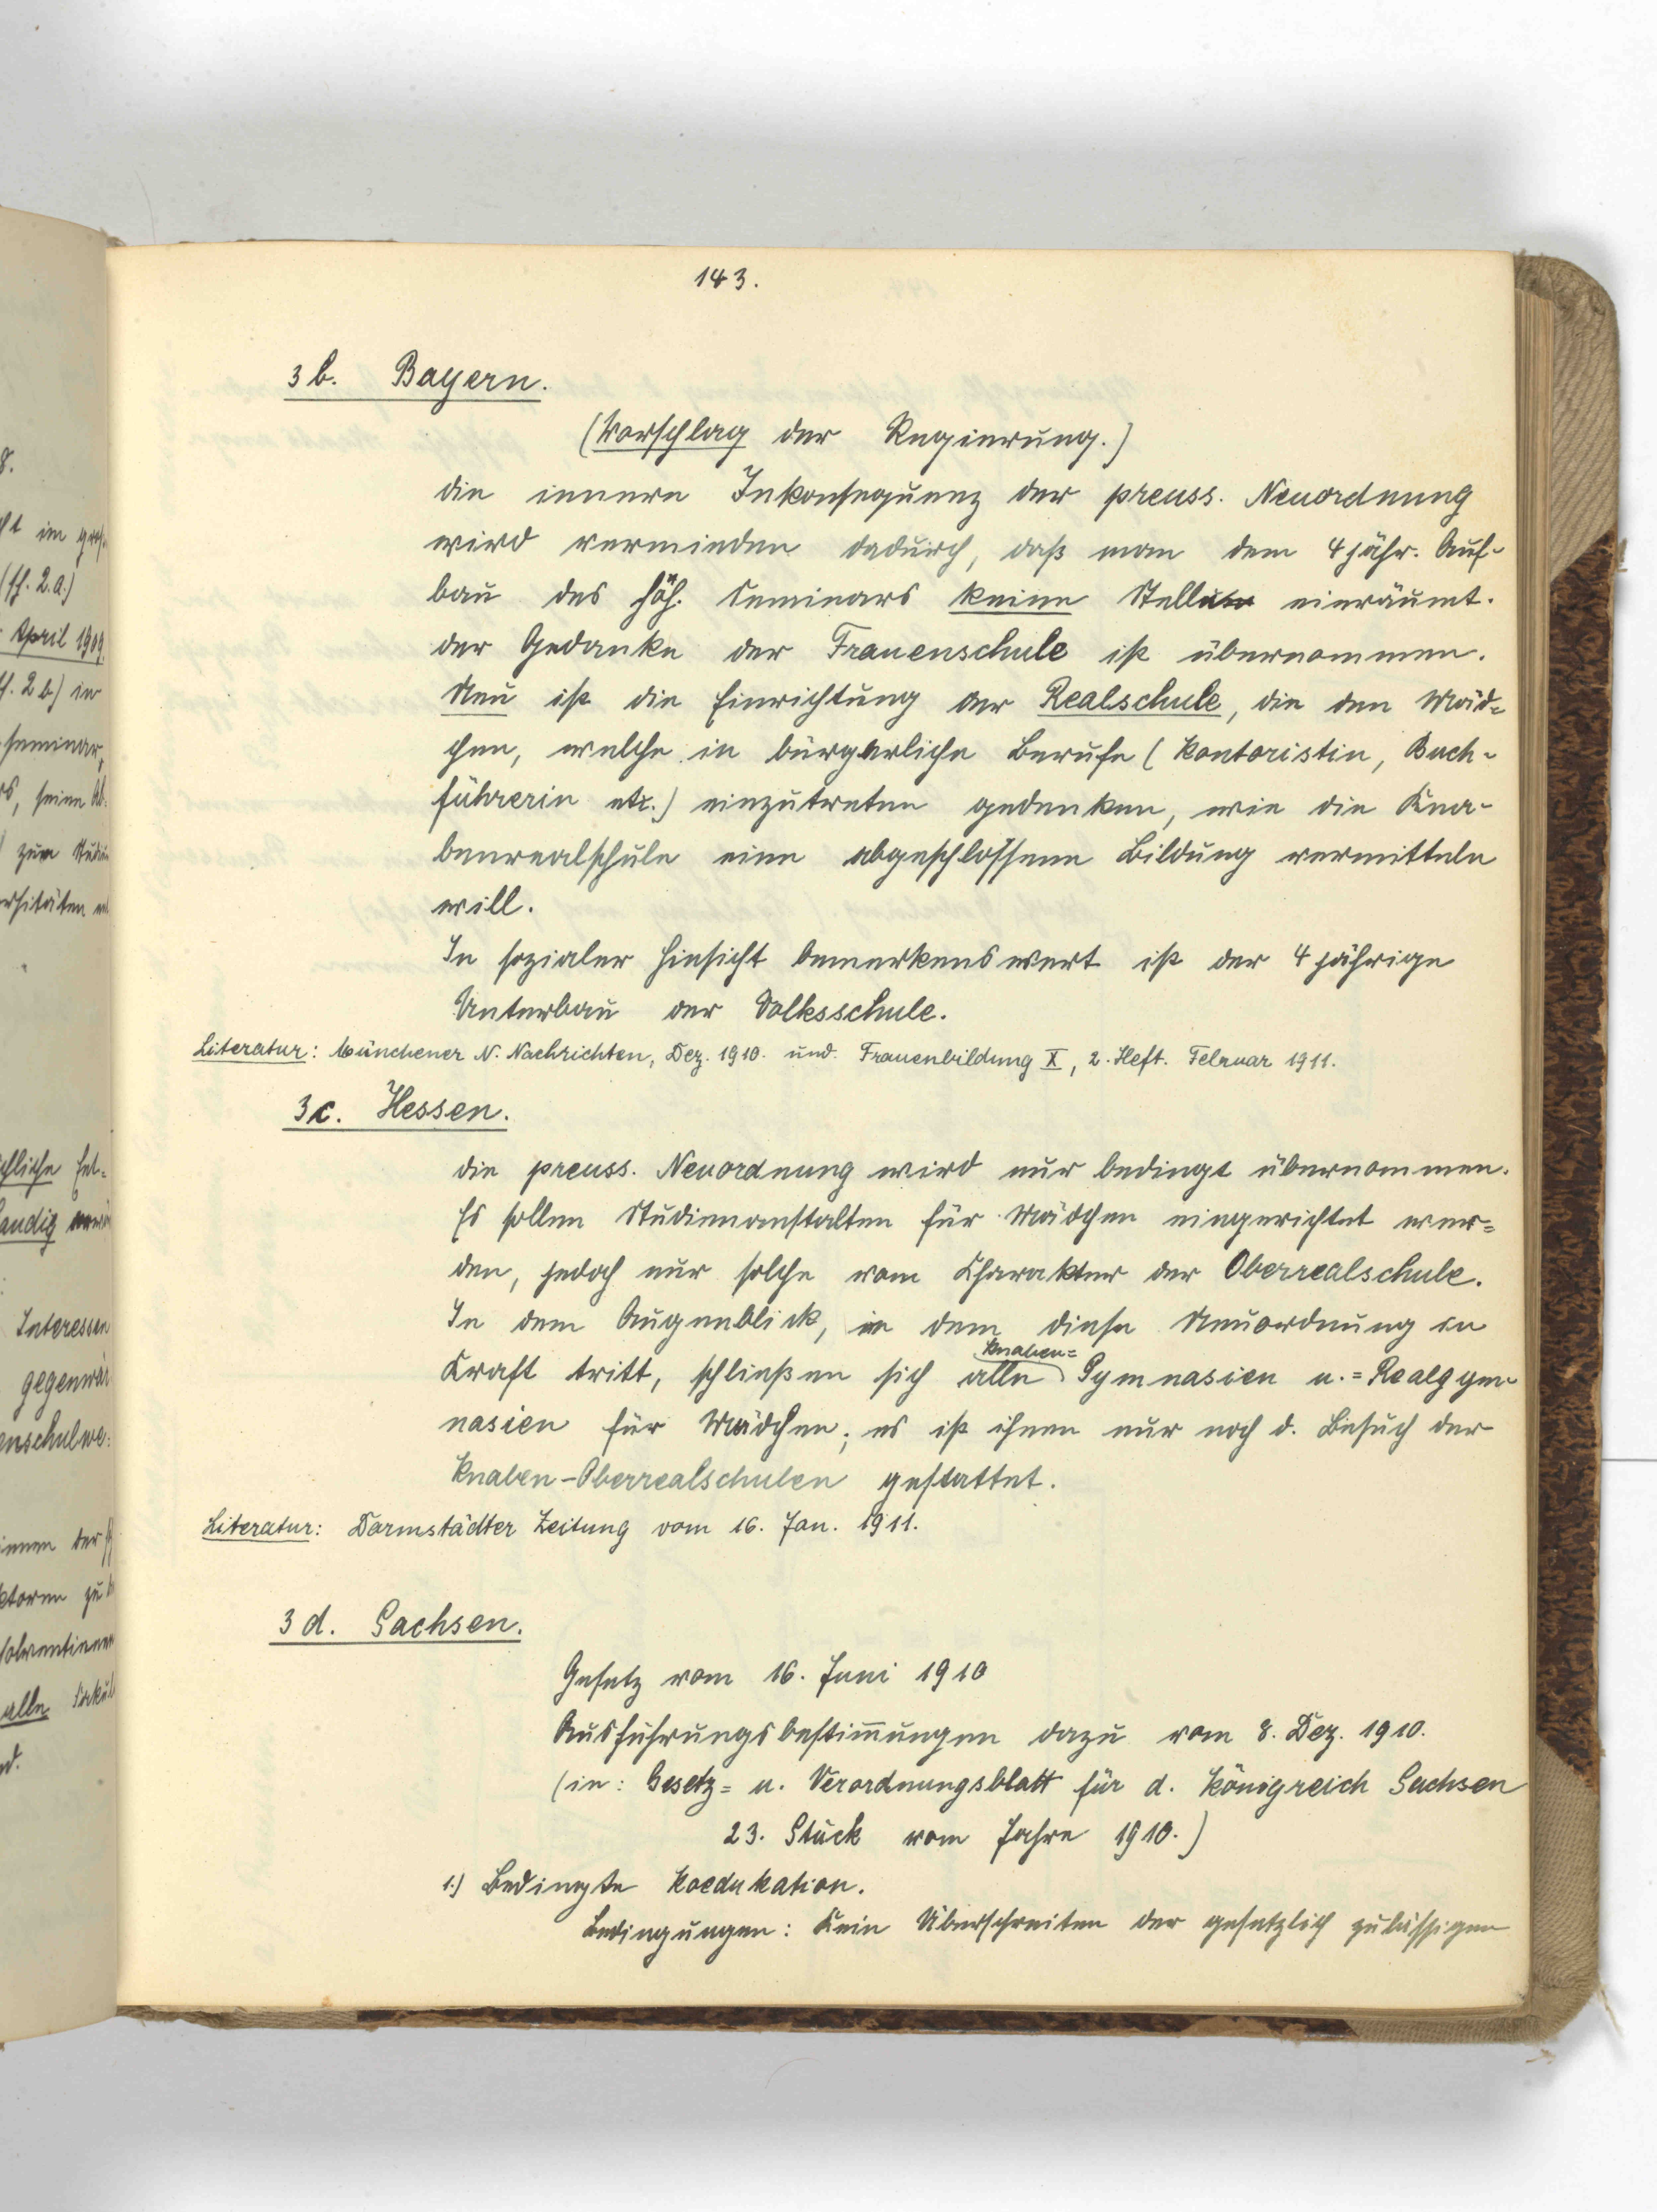 143.
3 b. Bayern.
(Vorschlag der Regierung.)
Die innere Inkonsequenz der preuss. Neuordnung
wird vermieden dadurch, daß man dem 4 jähr. Auf-
bau des höh. Seminars keine Stelle einräumt.
Der Gedanke der Frauenschule ist übernommen.
Neu ist die Einrichtung der Realschule, die den Mäd=
chen, welche in bürgerliche Berufe (Kontoristin, Buch-
führerin etc.) einzutreten gedenken, wie die Kna-
benrealschule eine abgeschlossene Bildung vermitteln
will.
In sozialer Hinsicht bemerkenswert ist der 4 jährige
Unterbau der Volksschule.
Literatur: Münchener N. Nachrichten, Dez. 1910. und Frauenbildung X, 2. Heft. Februar 1911.
3c. Hessen.
Die preuss. Neuordnung wird nur bedingt übernommen.
Es sollen Studienanstalten für Mädchen eingerichtet wer=
den, jedoch nur solche vom Charakter der Oberrealschule.
In dem Augenblick, in dem diese Neuordnung in
Knaben=
Kraft tritt, schließen sich alle Gymnasien u. =Realgym-
nasien für Mädchen; es ist ihnen nur noch d. Besuch der
Knaben-Oberrealschulen gestattet.
Literatur: Darmstädter Zeitung vom 16. Jan. 1911.
3 d. Sachsen.
Gesetz vom 16. Juni 1910
Ausführungsbestimmungen dazu vom 8. Dez. 1910.
(in: Gesetz= u. Verordnungsblatt für d. Königreich Sachsen
23. Stück vom Jahre 1910.)
1.) Bedingte Koedukation.
Bedingungen: Kein Überschreiten der gesetzlich zulässigen